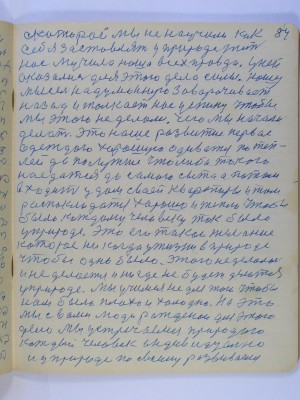 84
с которой мы не научим как
себя заставлять у природе учит
нас мучила наша вся правда. У ней
оказалися для этого дела силы. Нашу
мысел надуманную заворачивает
назад и толкает нас у спину чтобы
мы этого не делали, чего мы начали
делать. Это наше развитие первое
одеть до хорошую одежду по теп-
лей да получше чтолибо такого
наедатся до самого сыта а потом
входит у дом свой квартиру и там
располождатся хорошо и тепло чтобы
было каждому человеку так было
у природе. Это его такое желание
которое никогда у жизни в природе
чтобы одно было. Этого не делалося
и не делается и нигде не будет делатся
у природе. Мы учимся не для того чтобы
нам было плохо и холодно. На это
мы с вами люди рожденои для этого
дела мы устречаемся природого
каждый человек индивидуално
и у природе по своему развиваемся